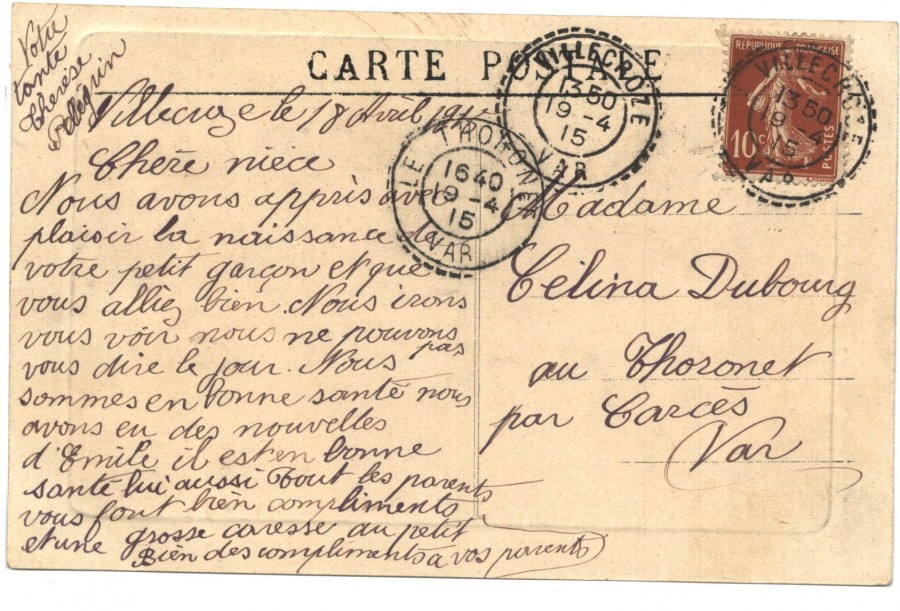 CARTE POSTALE
Votre
tante
Thérèse
Villecroze le 18 Avril
Chère nièce
Nous avons appris avec
plaisir la naissance de
votre petit garçon et que
vous alliez bien. Nous irons
vous voir nous ne pouvons
pas
vous dire le jour. Nous
sommes en bonne santé nous
avons eu des nouvelles
d'Emile il est en bonne
santé lui aussi Tout les parents
vous font bien compliments
et une grosse caresse au petit
Bien des compliments a vos parents
Madame
Célina Dubourg
au Thoronet
par Carcès
Var
VILLECROZE
13 50
19 -4
15
VAR
LE THORONET
16 40
19 -4
15
VAR
REPUBLIQUE FRANÇAISE
10 c
POSTES
VILLECROZE
13 50
19 -4
15
VAR